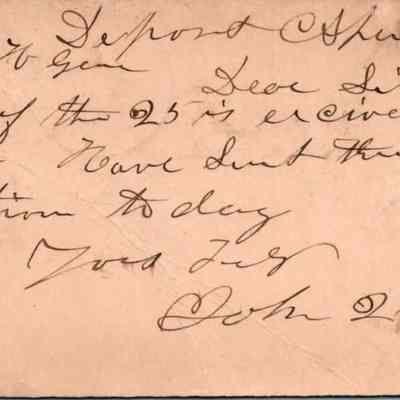 Deposit C Spri
Gen Dear Si
of the 25 is ercive
Have Sent the
tion to day
Yors Tuly
John